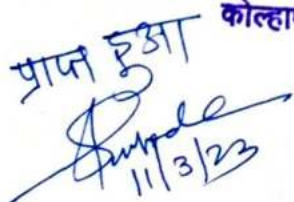 कोल्हा
प्राप्त हुआ
11/3/23